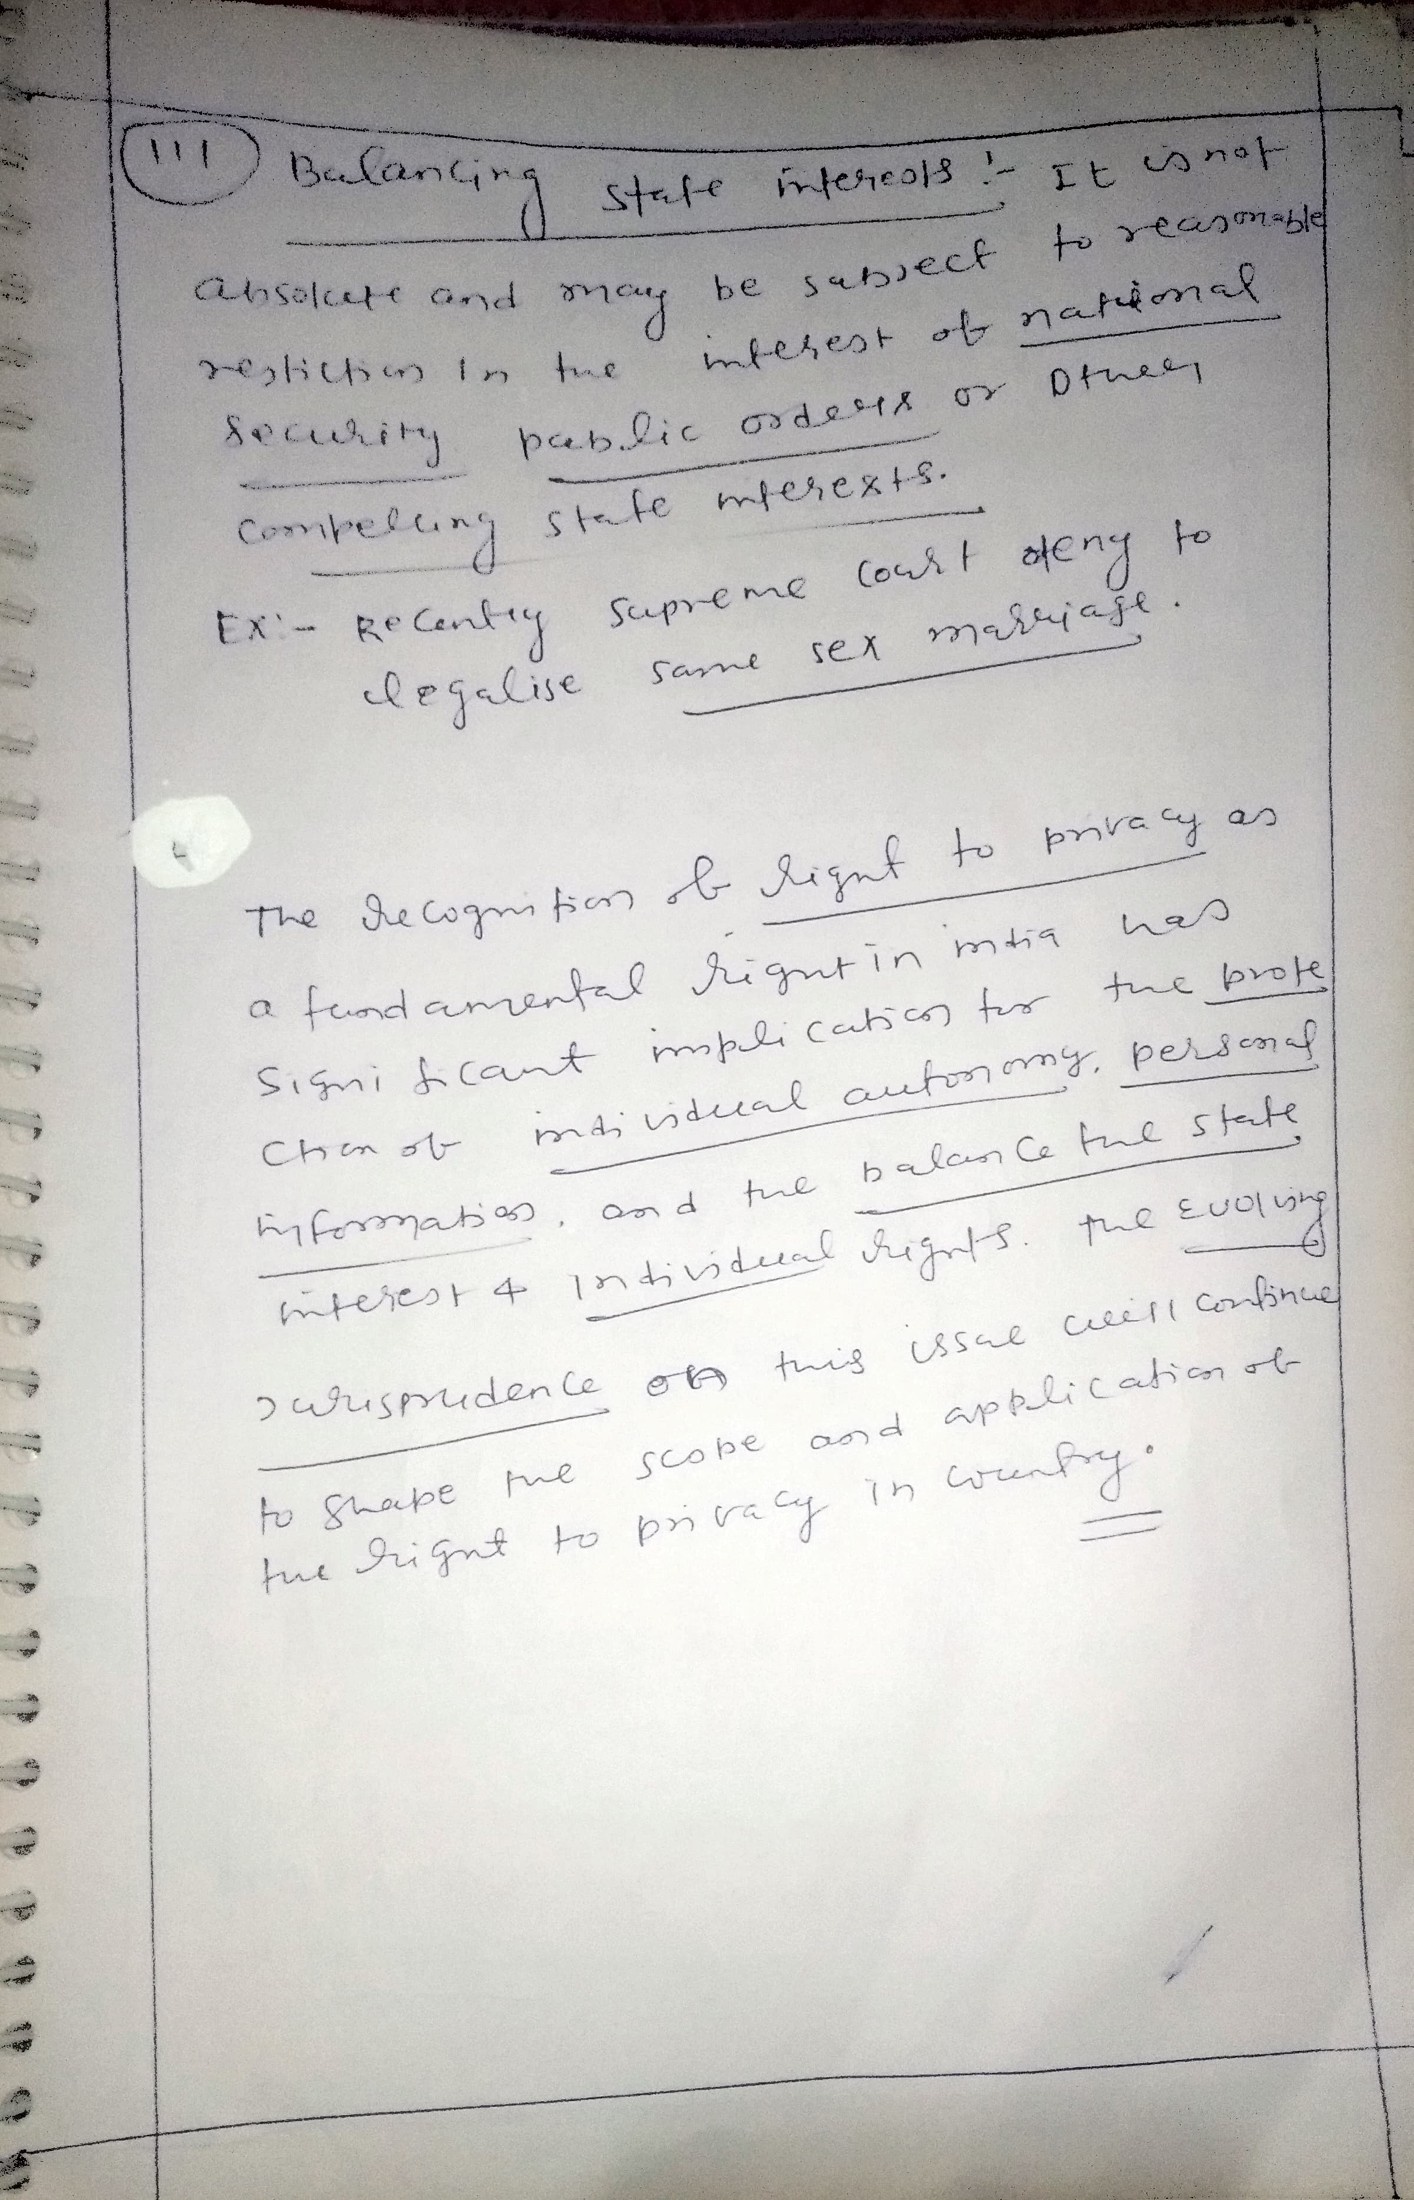 III Balancing state interests :- It is not
absolute and may be subject to reasonable
restiction in the interest of national
security public orders or Other
compelling state interests.
Ex:- Recently supreme court deny to
legalise same sex marriage.
The recognition of right to privacy as
a fundamental right in india has
significant implication for the prote
ction of individual autonomy, personal
information, and the balance the state
interest & individual rights. the evolving
jurisprudence on this issue will continue
to shape the scope and application of
the right to privacy in country.